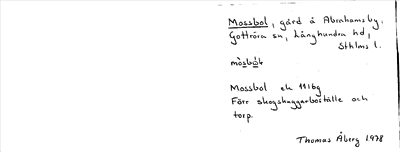 Mossbol, gård å Abrahamsby,
Gottröra sn, Långhundra hd,
Sthlms l.
Mossbol ek 11 16g
Förr skogshuggarboställe och
torp.
Thomas Åberg 1978